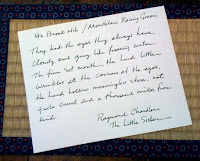 They had the eyes they always have,
cloudy and grey like freezing water.
The firm set mouth, the hard little
wrinkles at the corners of the eyes,
the hard hollow meaningless stare, not
quite cruel and a thousand miles from
kind.
Raymond Chandler
The Little Sister